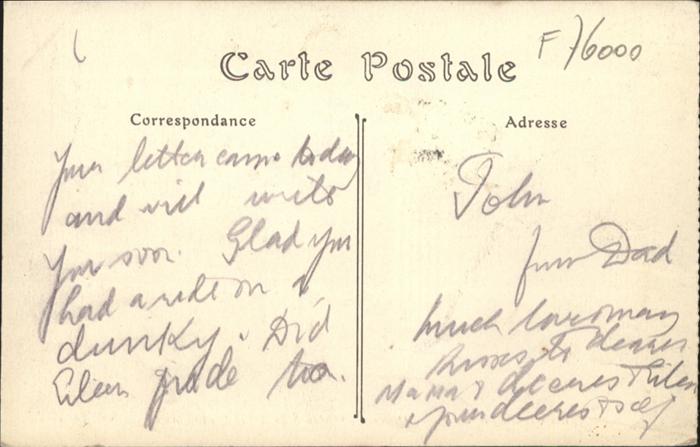 F/6000
Carte Postale
Correspondance
Adresse
Your letter came today
and will write
you soon. Glad you
had a ride on a
dunky. Did
Eileen ride too.
John
from Dad
much love many
kisses to dearest
Mama & dearest Eileen
& your dearest self